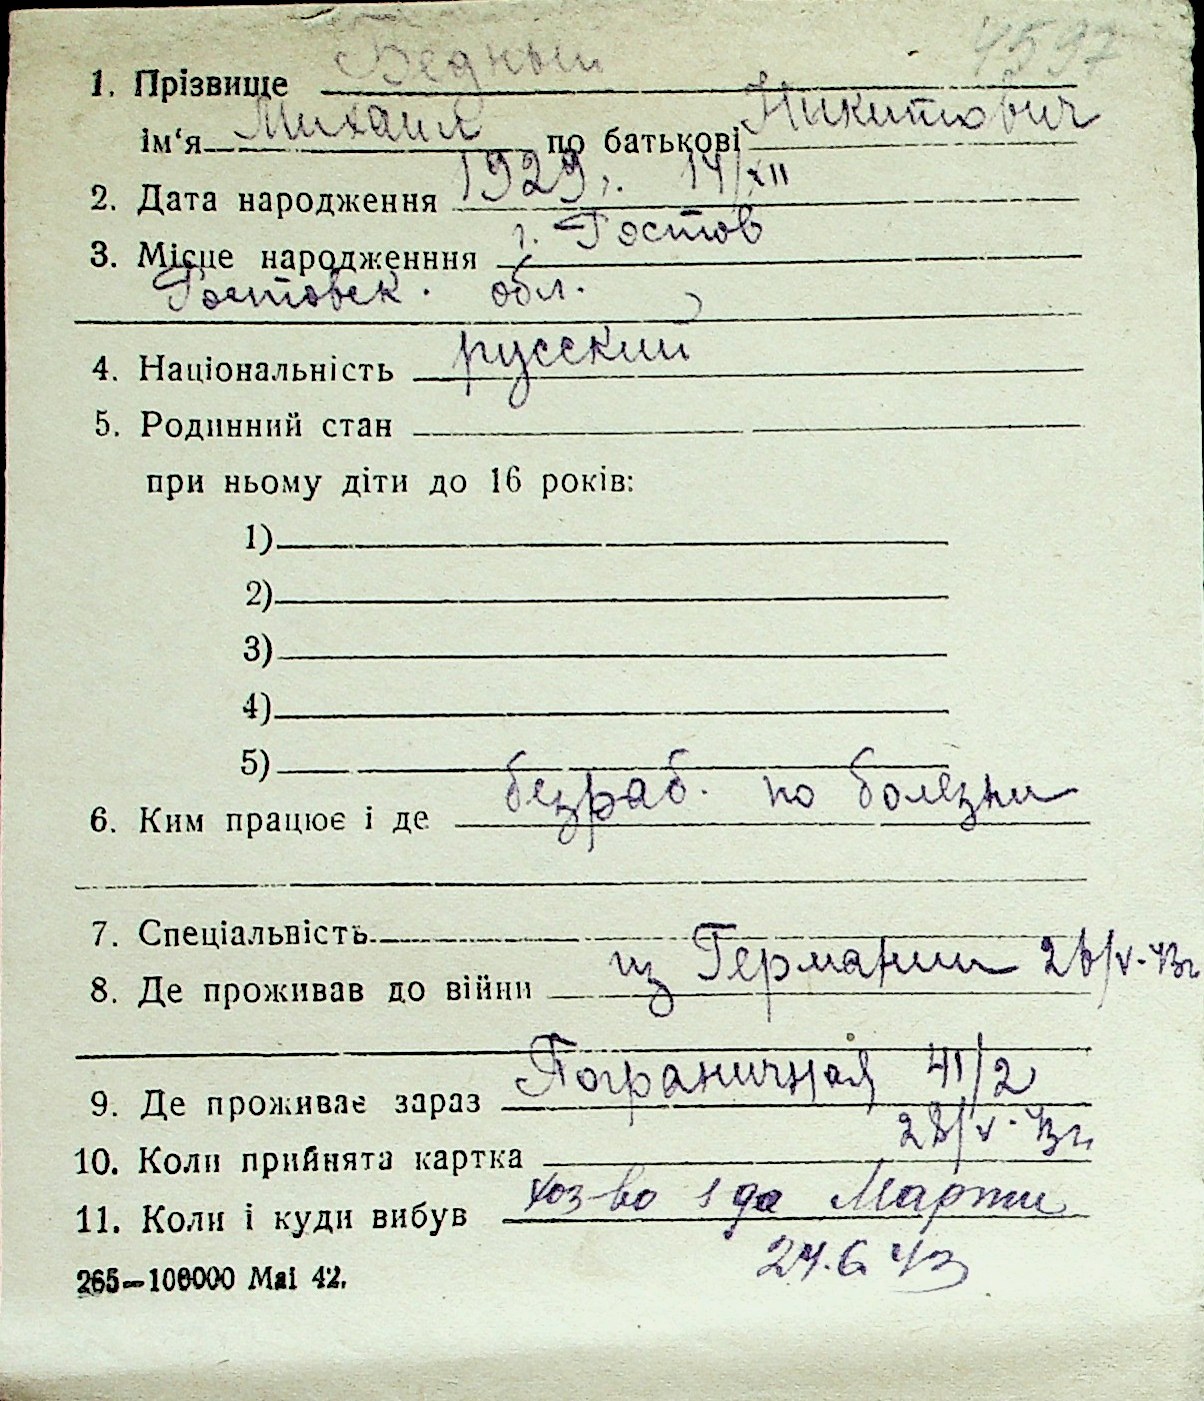 4597
1. Прізвище Бедный
ім‘я Михаил по батькові Никитович
2. Дата народження 1929 г. 14/XII
3. Місце народженння г. Ростов
Ростовск. обл.
4. Національність русский
5. Родинний стан
при ньому діти до 16 років:
1)
2)
3)
4)
5)
6. Ким працює і де безраб. по болезни
7. Спеціальність
8. Де проживав до війни из Германии 26/V-43г
9. Де проживає зараз Пограничная 41/2
10. Коли прийнята картка 28/V-43г.
11. Коли і куди вибув хоз-во 1 да Марти
24.6.43
265—100000 Mai 42.